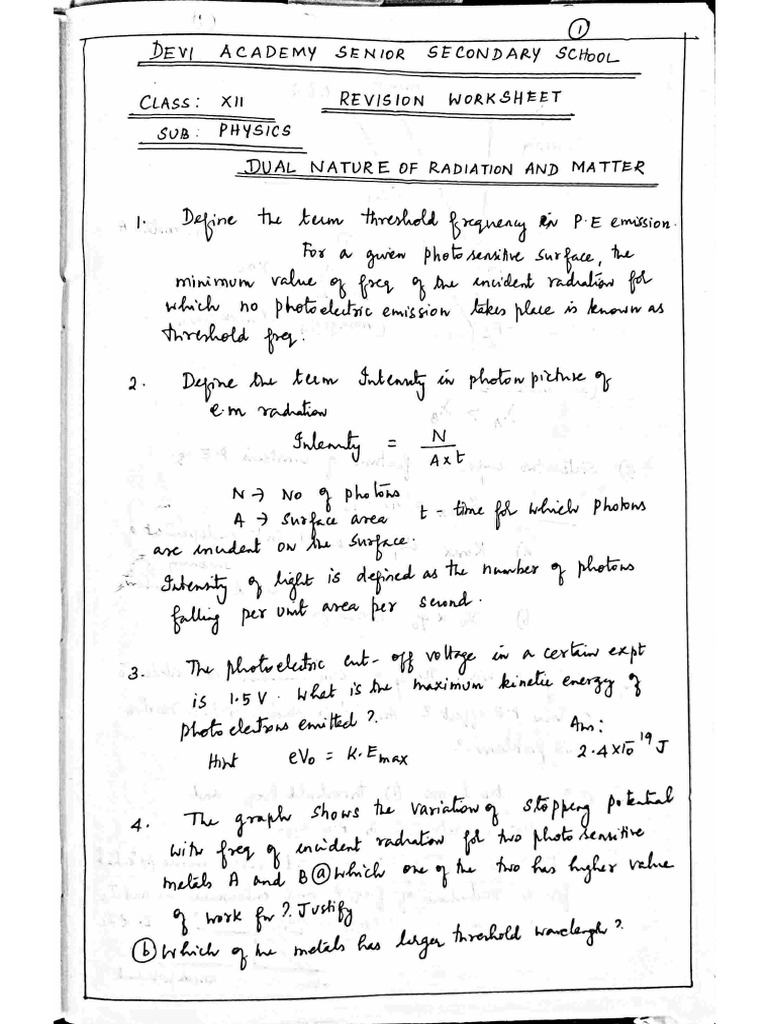 1
DEVI ACADEMY SENIOR SECONDARY SCHOOL
CLASS: XII REVISION WORKSHEET
SUB: PHYSICS
DUAL NATURE OF RADIATION AND MATTER
1. Define the term threshold frequency in P.E emission.
For a given photosensitive surface, the
minimum value of freq of the incident radiation for
which no photoelectric emission takes place is known as
threshold freq.
2. Define the term Intensity in photon picture of
e.m radiation
Intensity = N / A x t
N → No of photons
A → Surface area t - time for which photons
are incident on the surface.
Intensity of light is defined as the number of photons
falling per unit area per second.
3. The photoelectric cut-off voltage in a certain expt
is 1.5 V. What is the maximum kinetic energy of
photoelectrons emitted? Ans:
Hint eV₀ = K.E max 2.4 x 10⁻¹⁹ J
4. The graph shows the variation of stopping potential
with freq of incident radiation for two photosensitive
metals A and B (a) which one of the two has higher value
of work fn? Justify
(b) Which of the metals has larger threshold wavelength?